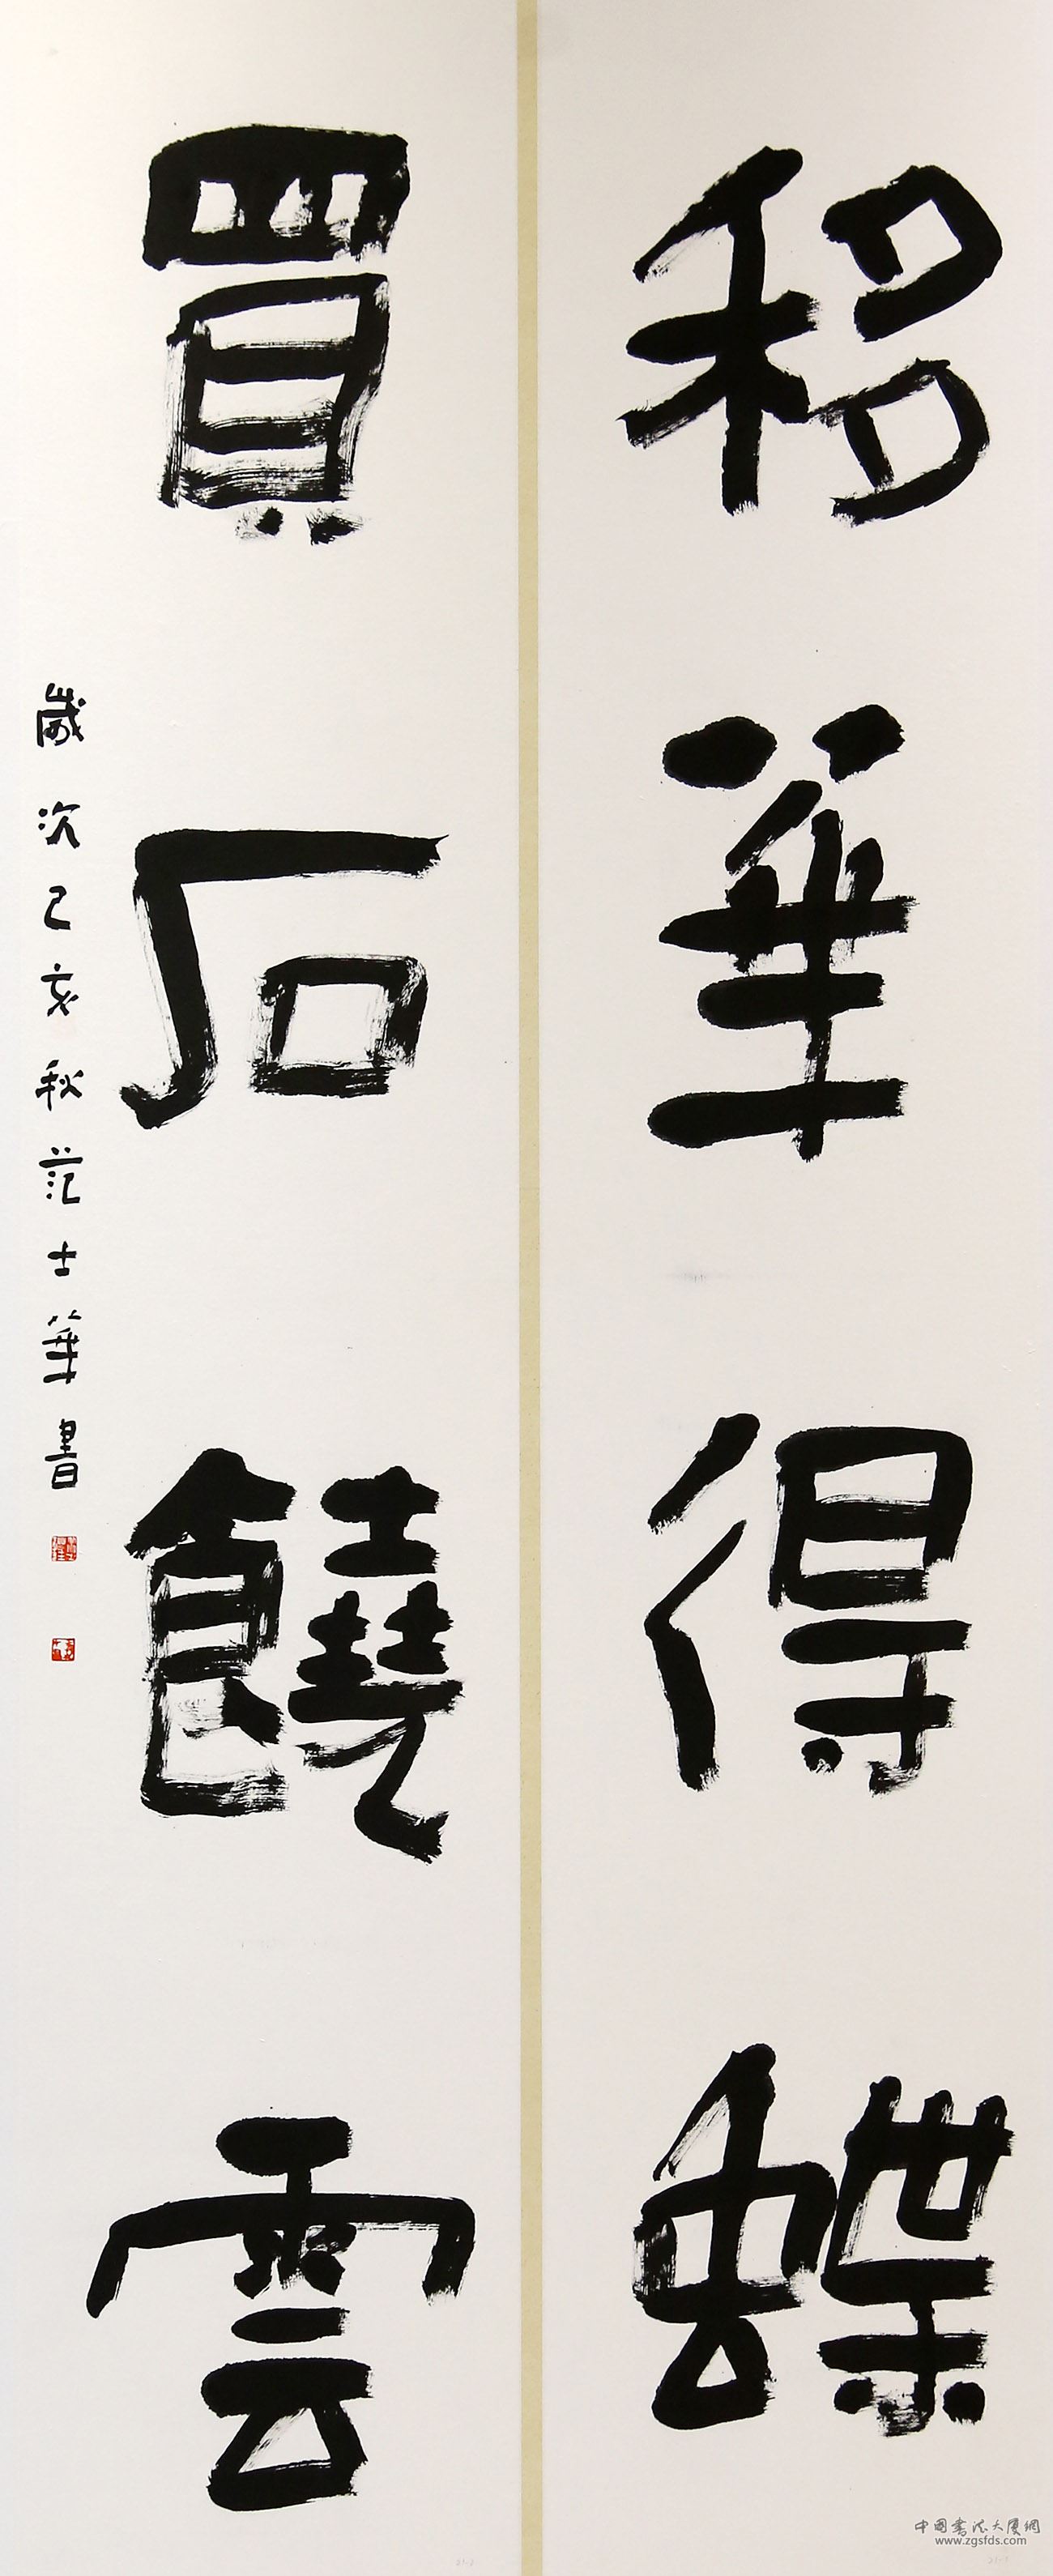 移華得蝶
買石饒雲
歲次己亥秋范士華書
中国书法大厦網
www.zgsfds.com